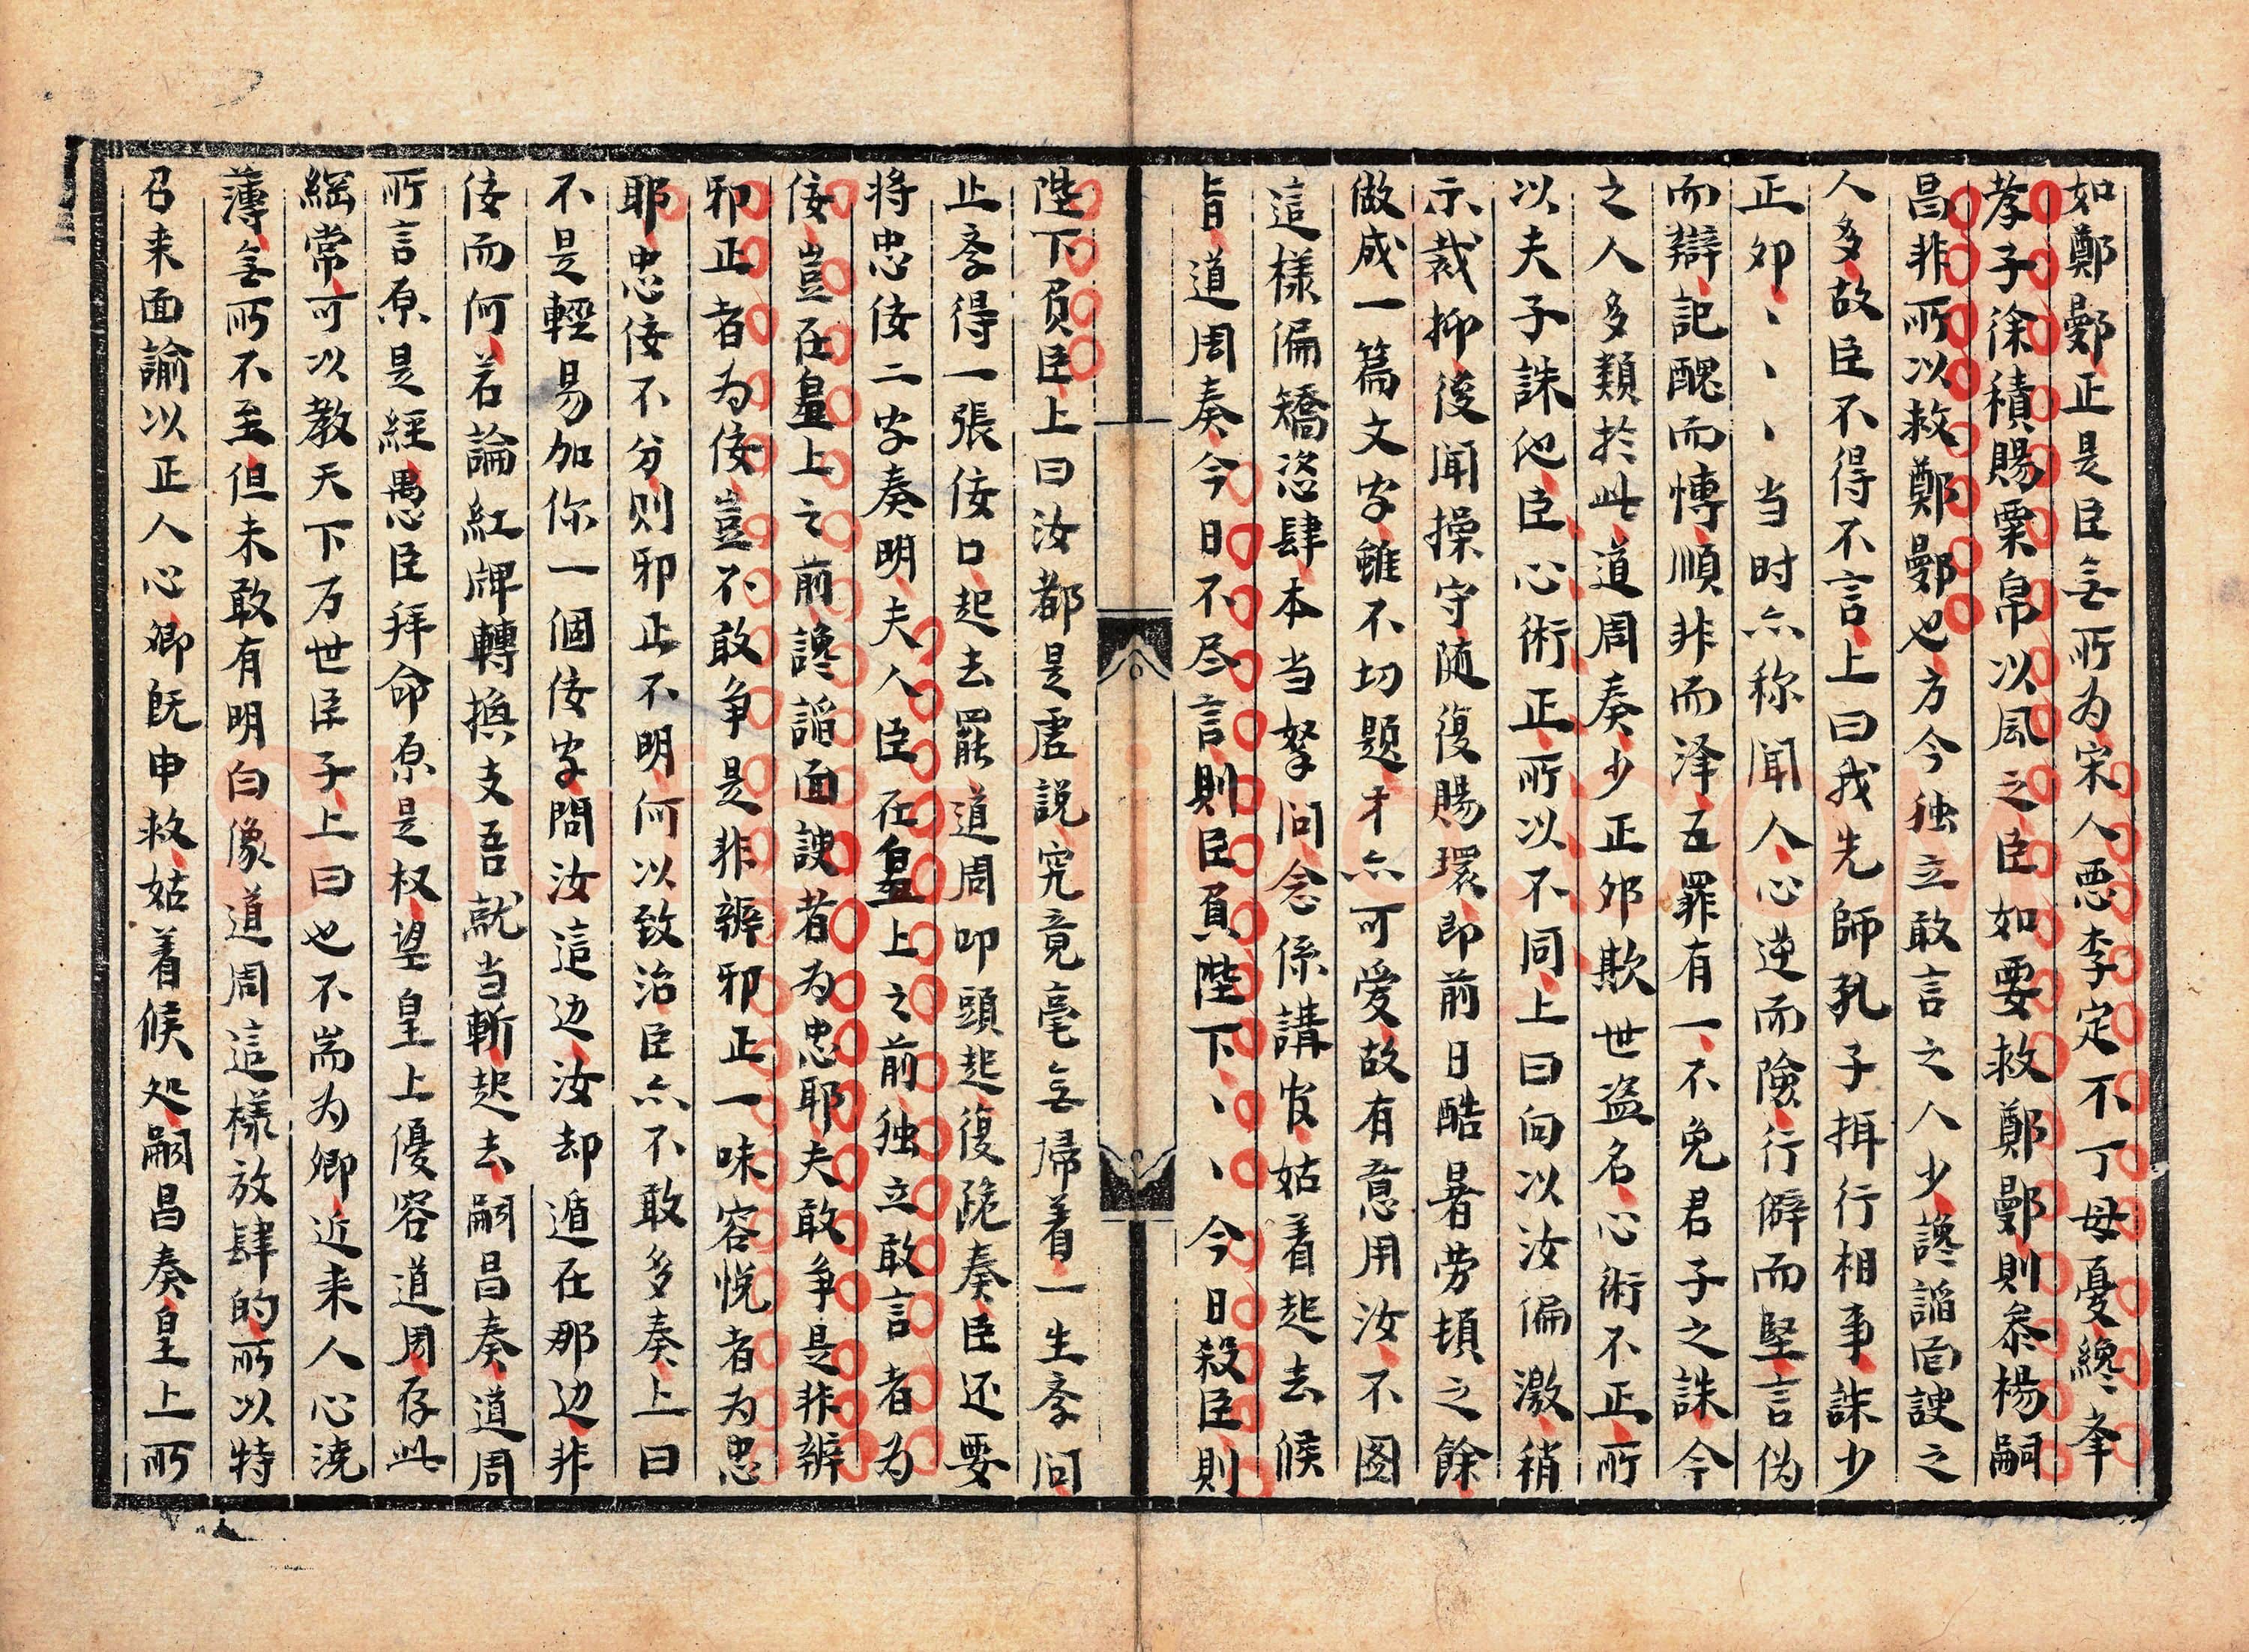 如鄭鄤正是臣無所为宋人悪李定不丁母憂纔举
孝子徐積賜粟帛以風之臣如要救鄭鄤則恭楊嗣
昌非所以救鄭鄤也方今独立敢言之人少讒謟面諛之
人多故臣不得不言上曰我先師孔子摂行相事誅少
正卯、、、当时亦称聞人心逆而險行僻而堅言伪
而辯記醜而愽順非而泽五罪有一不免君子之誅今
之人多類於此道周奏少正卯欺世盗名心術不正所
以夫子誅他臣心術正所以不同上曰向以汝偏激稍
示裁抑後聞操守随復賜環即前日酷暑劳頓之餘
做成一篇文字雖不切题才亦可愛故有意用汝不图
這樣偏矯恣肆本当拏问念係講官姑着起去候
旨道周奏今日不尽言則臣負陛下、、今日殺臣則
陛下負臣上曰汝都是虚説究竟毫無帰着一生学问
止学得一張佞口起去罷道周叩頭起復跪奏臣还要
将忠佞二字奏明夫人臣在皇上之前独立敢言者为
佞豈在皇上之前讒謟面諛者为忠耶夫敢争是非辨
邪正者为佞豈不敢争是非辨邪正一味容悅者为忠
耶忠佞不分则邪正不明何以致治臣亦不敢多奏上曰
不是輕易加你一個佞字問汝這边汝却遁在那边非
佞而何若論紅牌轉換支吾就当斬起去嗣昌奏道周
所言原是經愚臣拜命原是权望皇上優容道周存此
綱常可以教天下万世臣子上曰也不耑为卿近来人心澆
薄無所不至但未敢有明白像道周這樣放肆的所以特
召来面諭以正人心卿既申救姑着候処嗣昌奏皇上所